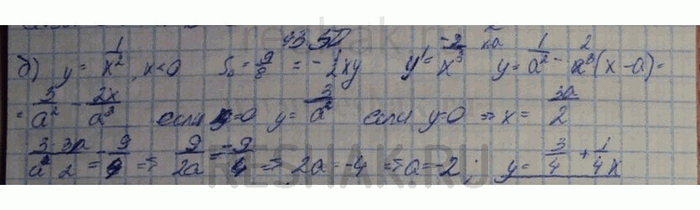 43.50
б) y = 1/x², x<0 S₀ = 9/8 = -½xy y' = -2/x³ y = 1/a² - 2/a³(x-a) =
= 3/a² - 2x/a³ если x=0 y = 3/a² если y=0 ⇒ x = 3a/2
3·3a/a²·2 = -9/4 ⇒ 9/2a = -9/4 ⇒ 2a = -4 ⇒ a = -2; y = 3/4 + 1/4x
RESHAK.RU